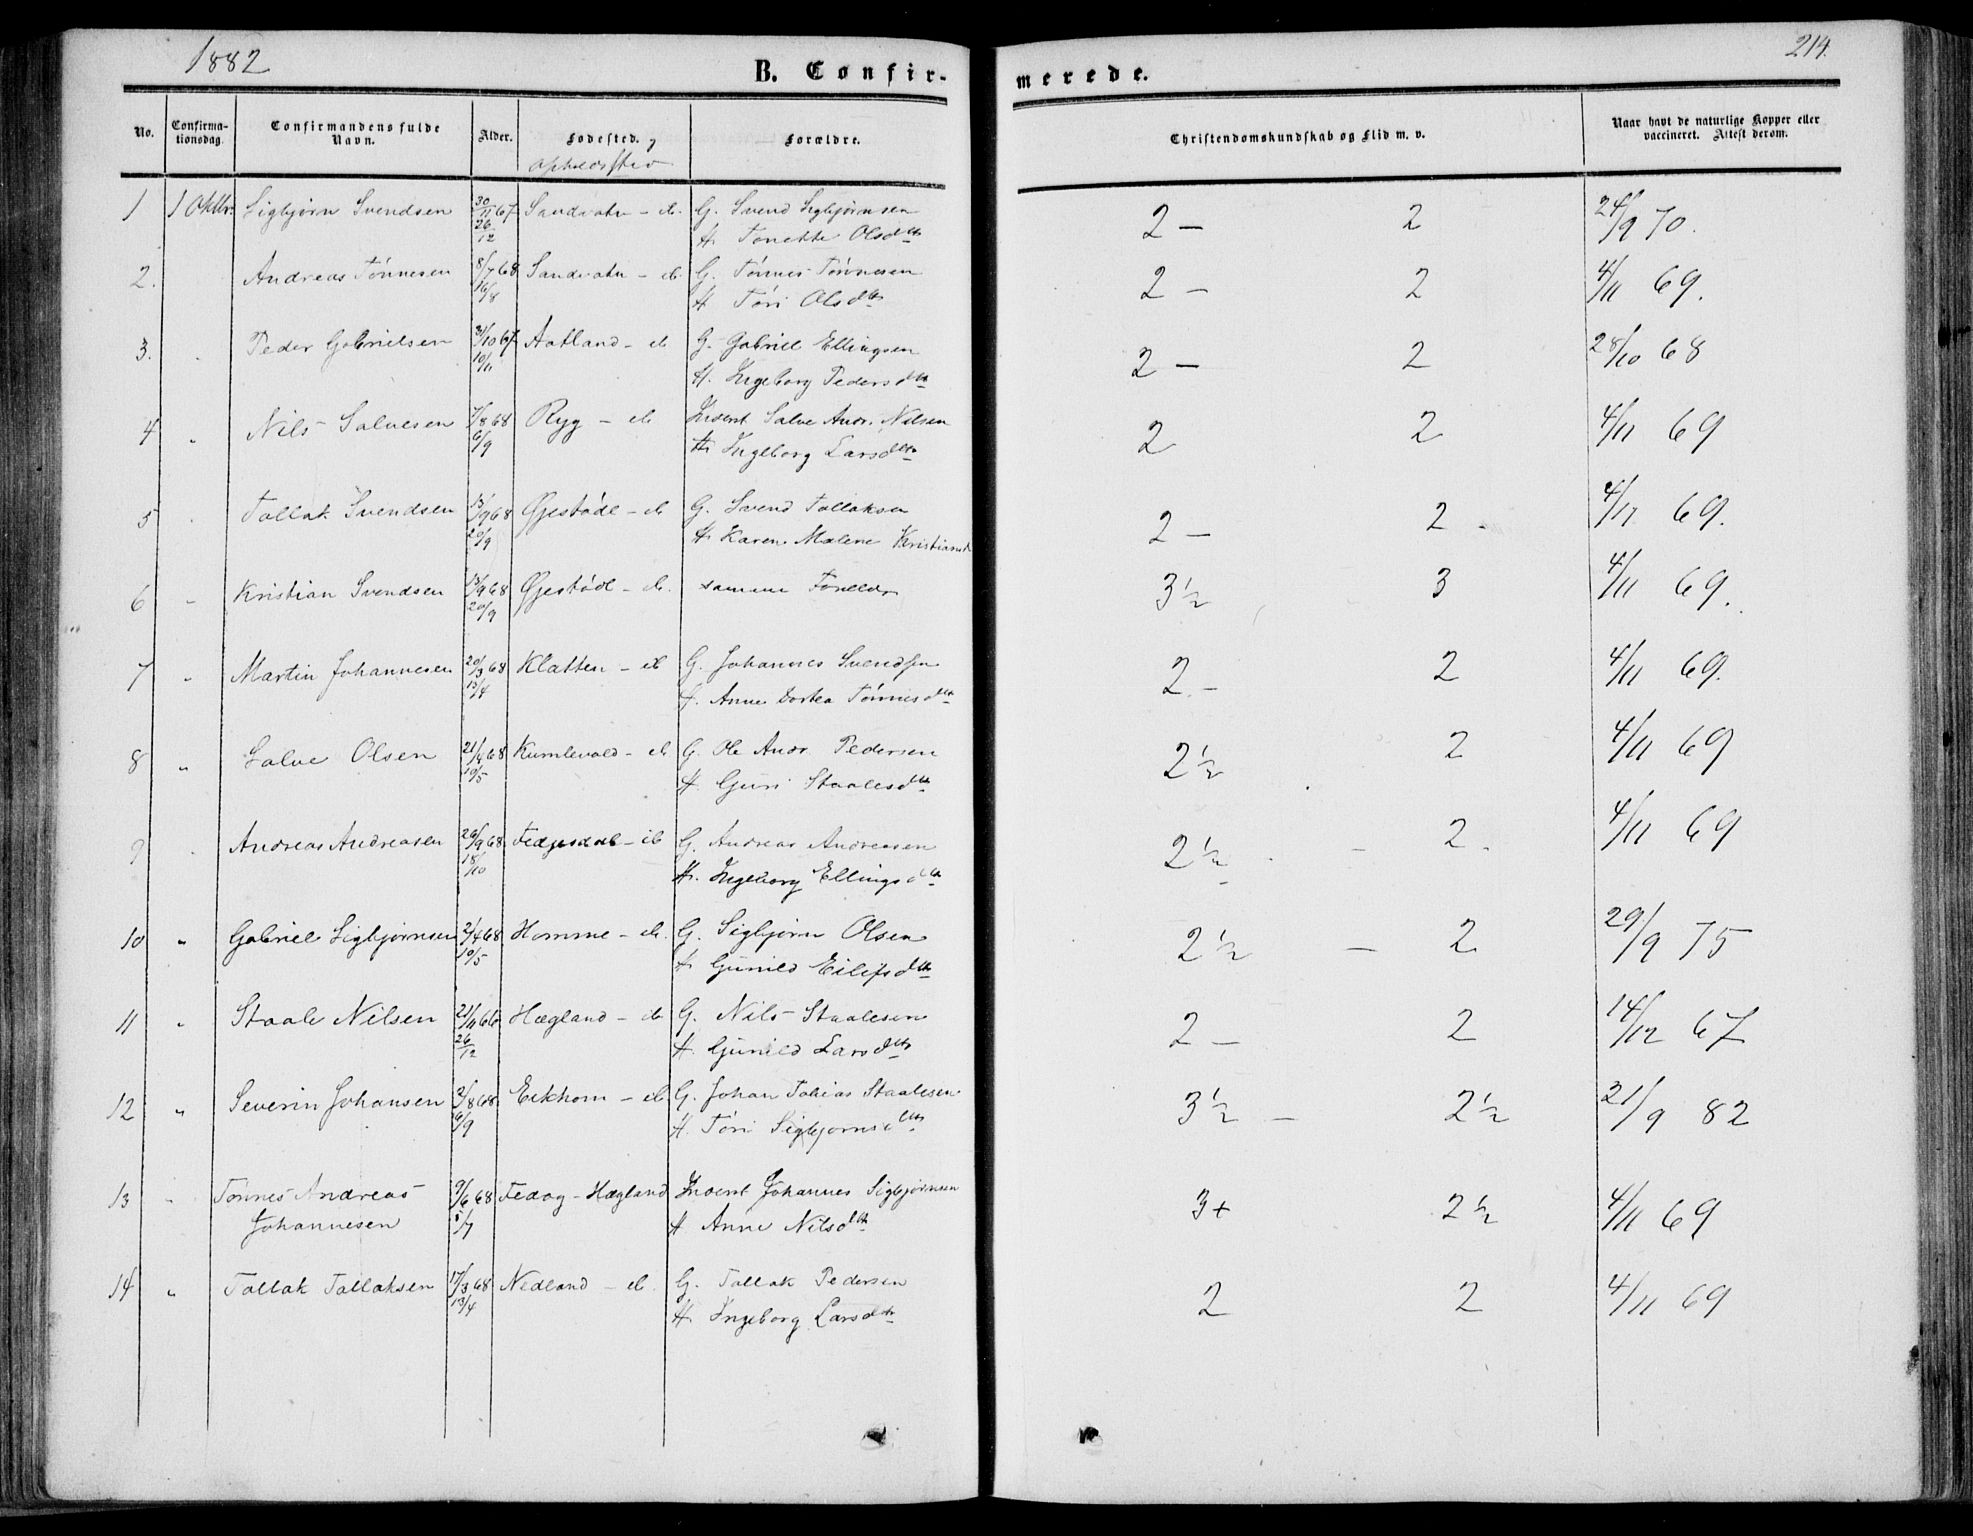 1882
B. Confir-
merede.
214.
No. Confirma-tionsdag. Confirmandens fulde Navn. Alder. Fødested. og Opholdssted Forældre. Christendomskundskab og Flid m. v. Naar havt de naturlige Kopper eller vaccineret. Attest derom.
1 1 Oktbr. Sigbjørn Svendsen 30/11 67 Sandvatn - ib. G. Svend Sigbjørnsen 2 - 2 24/9 70.
26/12 H. Tonette Olsdtr
2. Andreas Tønnesen 8/7 68 Sandvatn - ib G. Tønnes Tønnesen 2 - 2 4/11 69.
16/8 H Tøri Olsdtr
3. Peder Gabrielsen 31/10 67 Aatland - ib G. Gabriel Ellingsen 2 - 2 28/10 68
10/11 H. Ingeborg Pedersdtr
4 " Nils Salvesen 7/8 68 Ryg - ib Inderst Salve Andr. Nilsen 2 2 4/11 69
6/9 H. Ingeborg Larsdtr
5 Tallak Svendsen 13/9 68 Øjestødl - ib G. Svend Tallaksen 2 - 2 - 4/11 69.
20/9 H. Karen Malene Kristiansd
6 - Kristian Svendsen 13/9 68 Øjestødl - ib. samme Forældre 3½ 3 4/11 69.
20/9
7 " Martin Johannesen 20/3 68 Klatten - ib G. Johannes Svendsen 2 - 2 4/11 69.
13/4 H. Anne Dortea Tønnesdtr
8 " Salve Olsen 21/4 68 Kumlevold - ib G. Ole Andr. Pedersen 2½ 2 4/11 69
10/5 H. Guri Staalesdtr
9 Andreas Andreasen 26/9 68 - ib G. Andreas Andreasen 2½ - 2. 4/11 69
18/10 H. Ingeborg Ellingsdtr
10 " Gabriel Sigbjørnsen 2/4 68 Homme - ib. G. Sigbjørn Olsen 2½ - 2 29/9 75
10/5 H Gunild Eilifsdtr
11 " Staale Nilsen 21/11 66 Hægland - ib G. Nils Staalesen 2 - 2 14/12 67
26/12 H. Gunild Larsdtr
12 " Severin Johansen 2/8 68 Eikhom - ib. G. Johan Tobias Staalesen 3½ - 2½ 21/9 82
6/9 H. Tøri Sigbjørnsdtr
13 " Tønnes Andreas 9/6 68 Fedog - Hægland Inderst Johannes Sigbjørnsen 3+ 2½ 4/11 69
Johannesen 5/7 H. Anne Nilsdtr
14 " Tallak Tallaksen 17/3 68 Nedland - ib G. Tallak Pedersen 2 2 4/11 69
13/4 H. Ingeborg Larsdtr